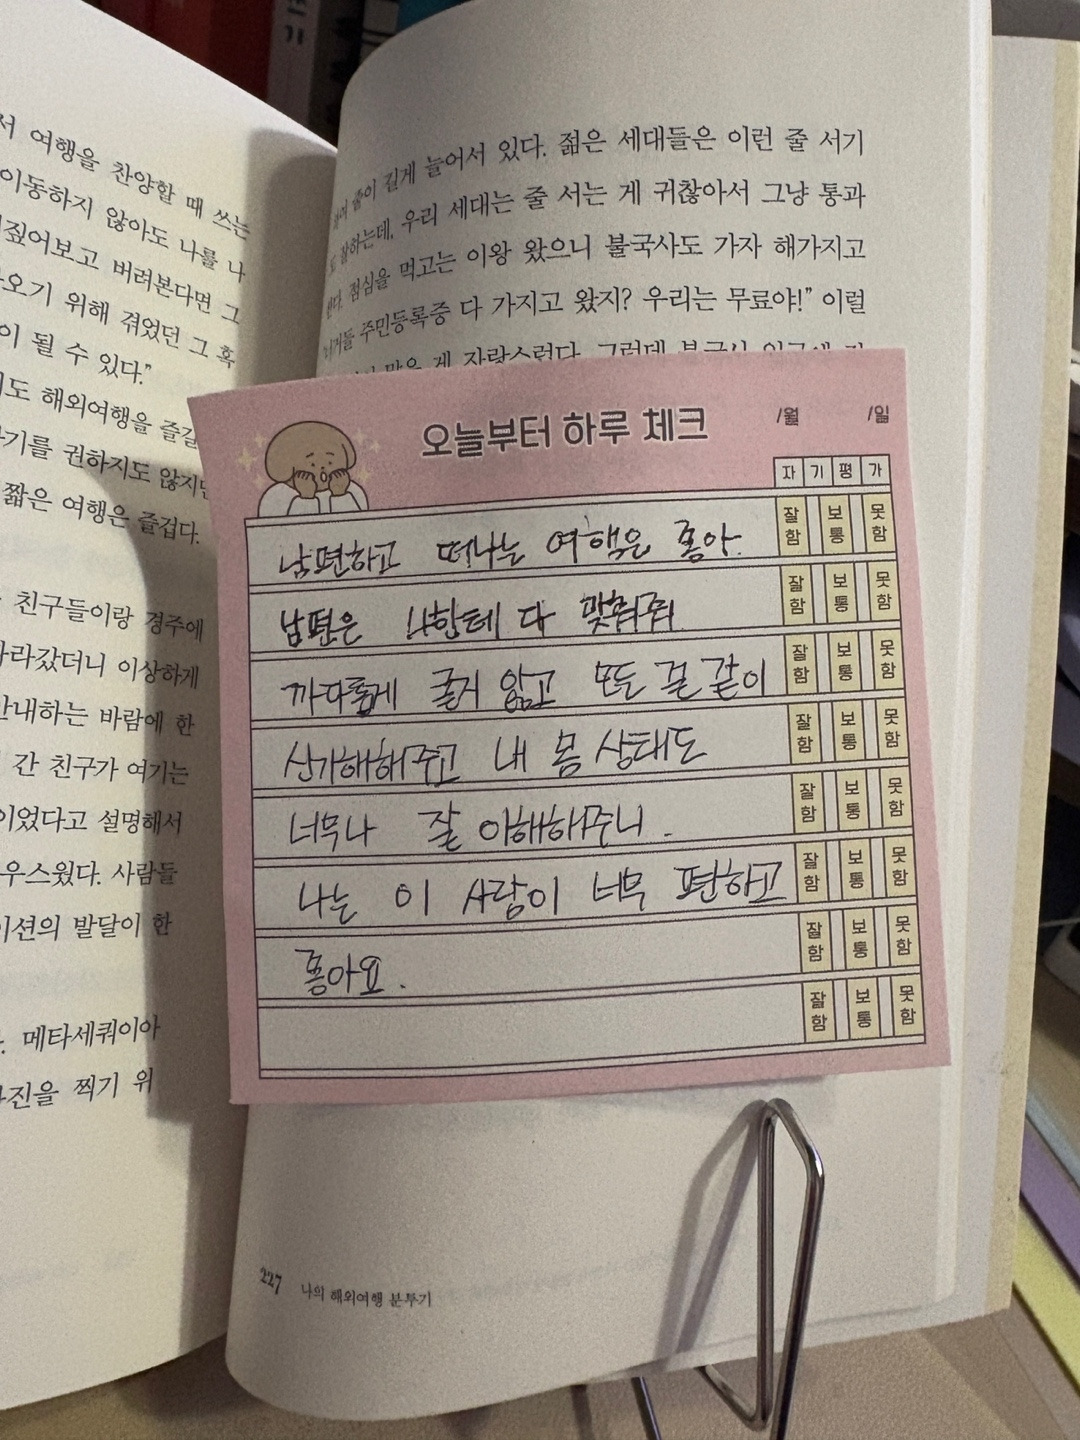 서 여행을 찬양할 때 쓰는
이동하지 않아도 나를 나
짚어보고 버려본다면 그
오기 위해 겪었던 그 혹
이 될 수 있다."
도 해외여행을 즐길
기를 권하지도 않지만
짧은 여행은 즐겁다.
친구들이랑 경주에
따라갔더니 이상하게
안내하는 바람에 한
간 친구가 여기는
이었다고 설명해서
우스웠다. 사람들
이션의 발달이 한
메타세쿼이아
사진을 찍기 위
줄이 길게 늘어서 있다. 젊은 세대들은 이런 줄 서기
도 잘하는데, 우리 세대는 줄 서는 게 귀찮아서 그냥 통과
했다. 점심을 먹고는 이왕 왔으니 불국사도 가자 해가지고
"너거들 주민등록증 다 가지고 왔지? 우리는 무료야!" 이럴
많은 게 자랑스럽다. 그런데 불국사 입구에
오늘부터 하루 체크 /월 /일
자기평가
남편하고 떠나는 여행은 좋아. 잘함 보통 못함
남편은 나한테 다 맞춰줘 잘함 보통 못함
까다롭게 굴지 않고 모든 걸 같이 잘함 보통 못함
신기해해주고 내 몸 상태도 잘함 보통 못함
너무나 잘 이해해주니. 잘함 보통 못함
나는 이 사람이 너무 편하고 잘함 보통 못함
좋아요. 잘함 보통 못함
잘함 보통 못함
227 나의 해외여행 분투기